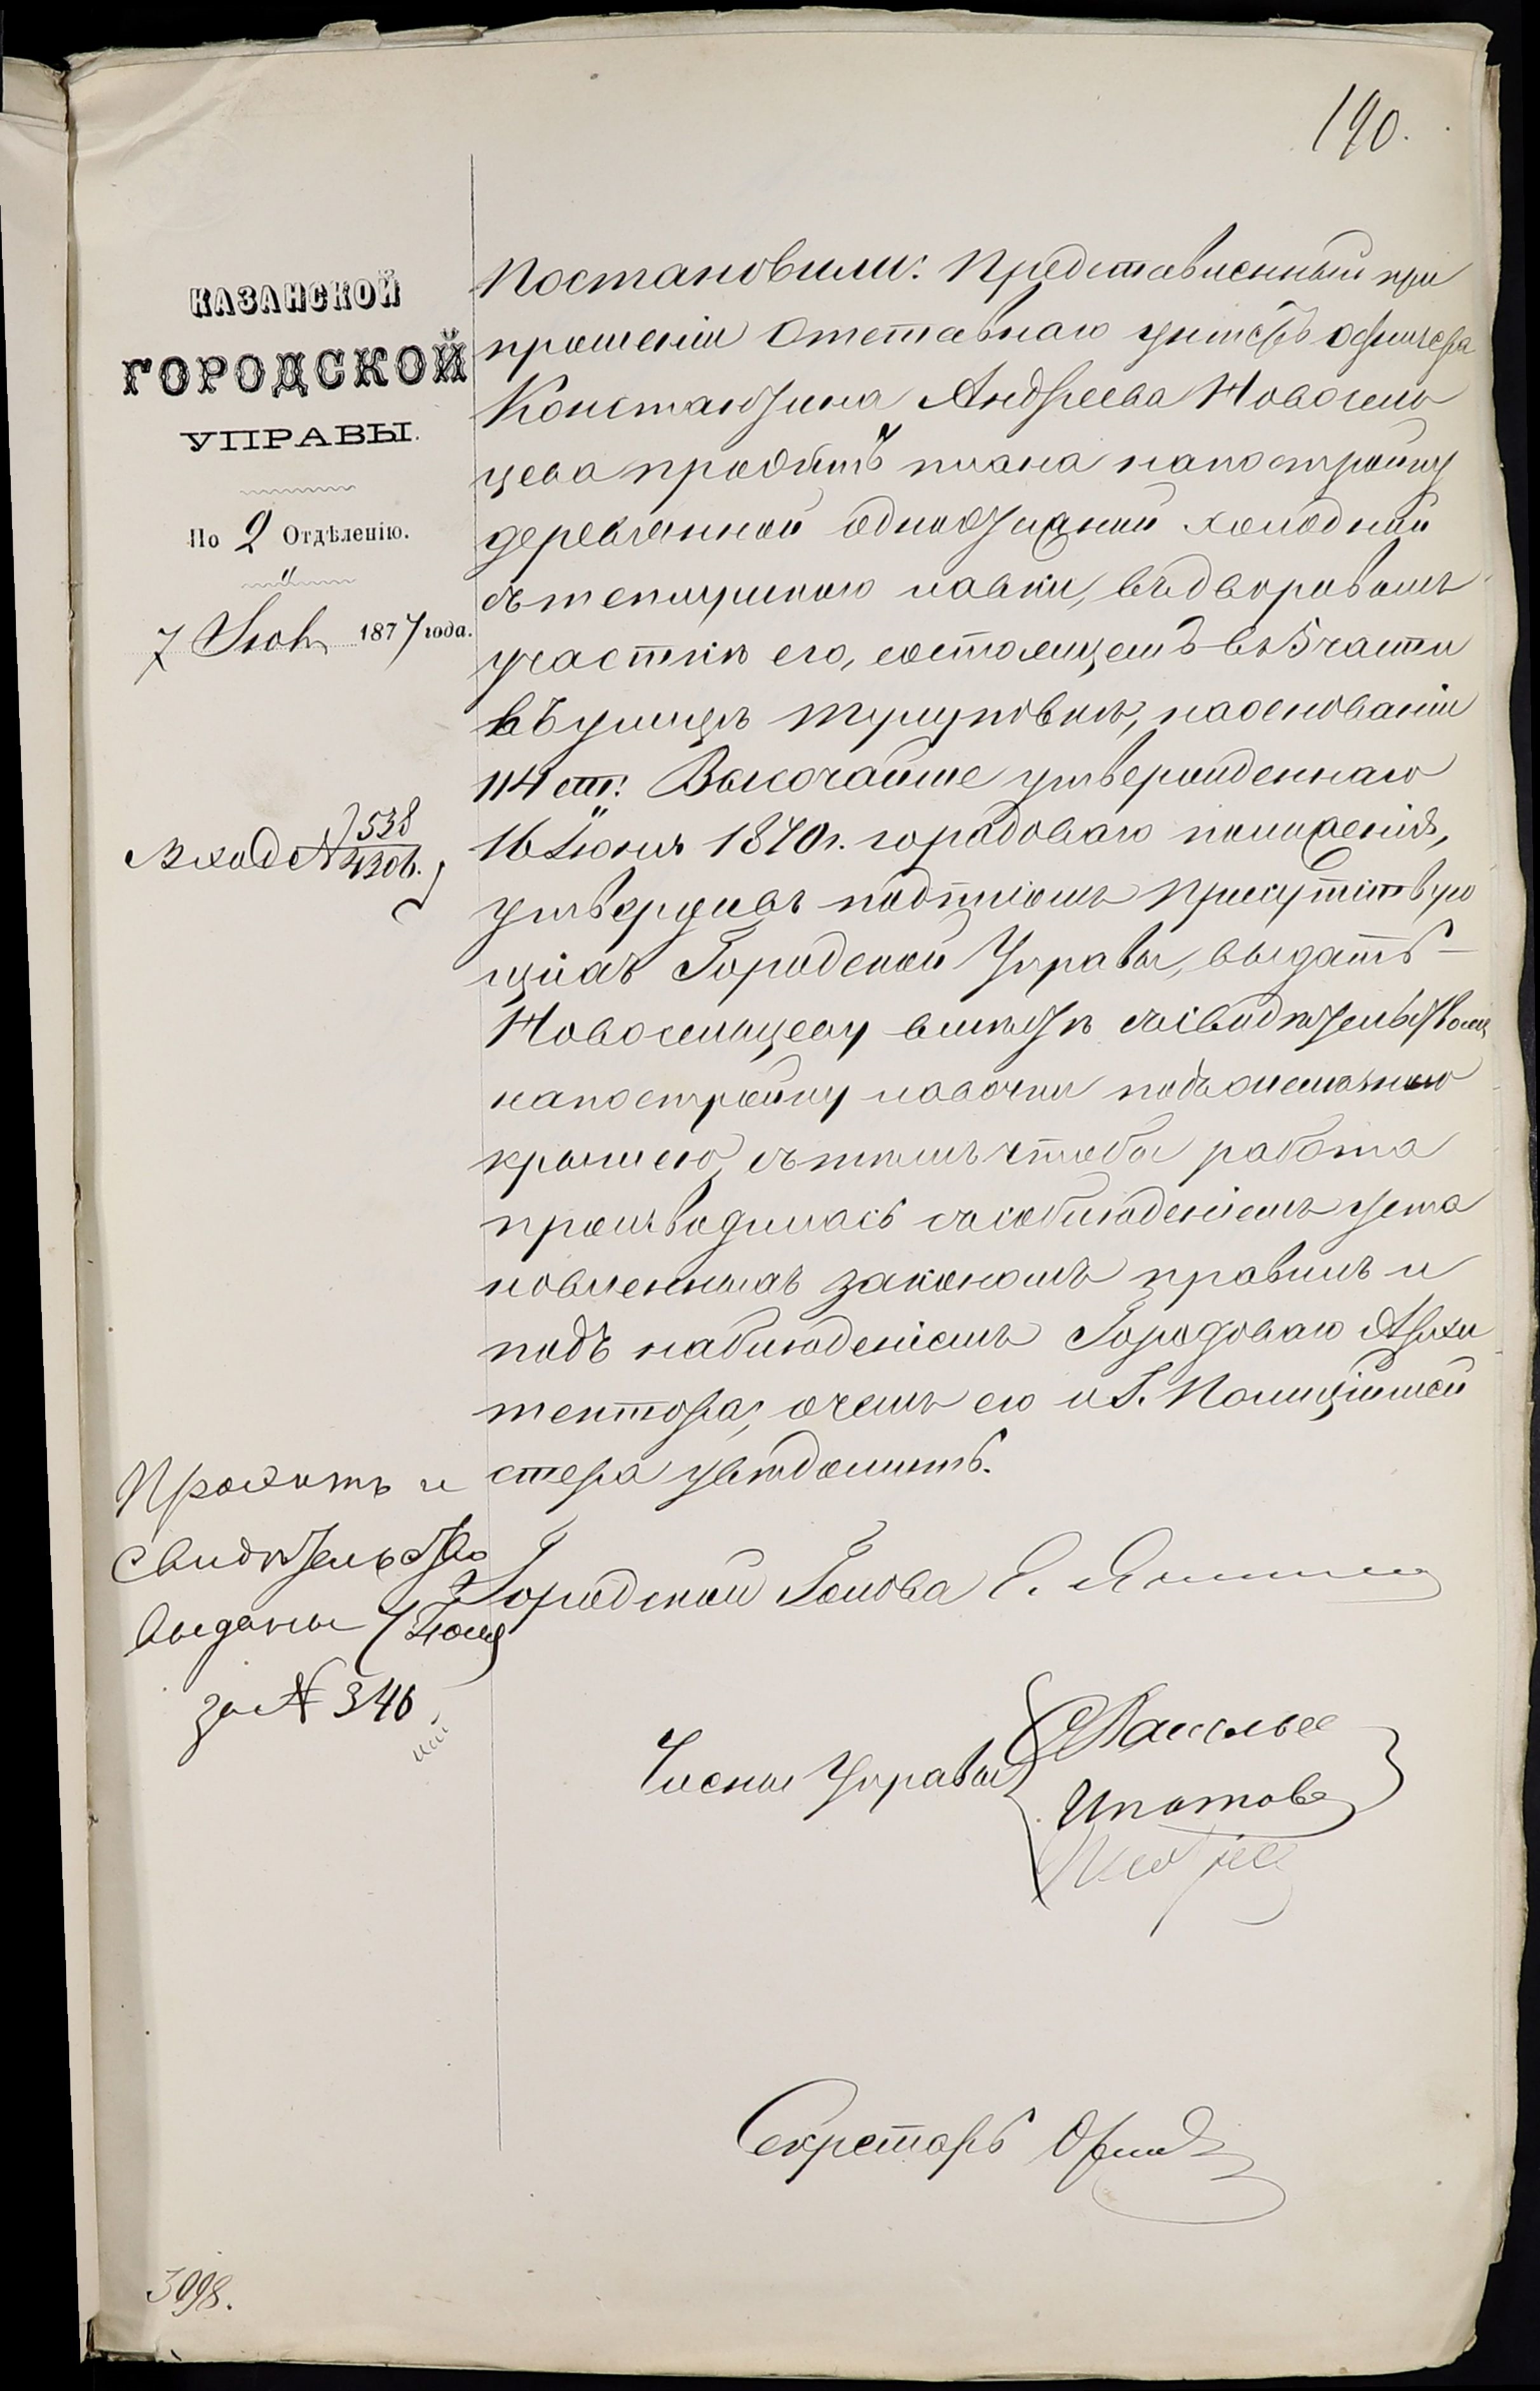 190.
КАЗАНСКОЙ
ГОРОДСКОЙ
УПРАВЫ.
По 2 Отдѣленію.
7 Іюля 1877 года.
Вход № 538
4306.
Постановили: Представленный при
прошеніи Отставнаго унтеръ офицера
Константина Андреева Новосель
цева проэктъ плана на постройку
деревянной одноэтажной холодной
бътепичного лавки, въ дворовомъ
участкѣ его, состоящемъ въ 5 части
въ улицѣ, на основаніи
114 ст. Высочайше утвержденнаго
16 Іюня 1870 г. городоваго положенія,
утвердивъ подписомъ присутствую
щихъ Городской Управы, выдать
Новосельцеву вмѣстѣ съ свидѣтельствомъ
на постройку лавочки подъ желѣзною
крышею, съ тѣмъ чтобы работа
производилась съ соблюденіемъ уста
новленныхъ закономъ правилъ и
подъ наблюденіемъ Городоваго Архи
тектора, о чемъ его и Г. Полиційме
стера увѣдомить.
Проэктъ и
свидѣтельство
выданы 7 Іюля
за № 346
Городской Голова Е. Янишъ
Члены Управы
Васильев
Ипатовъ
Секретарь
3098.